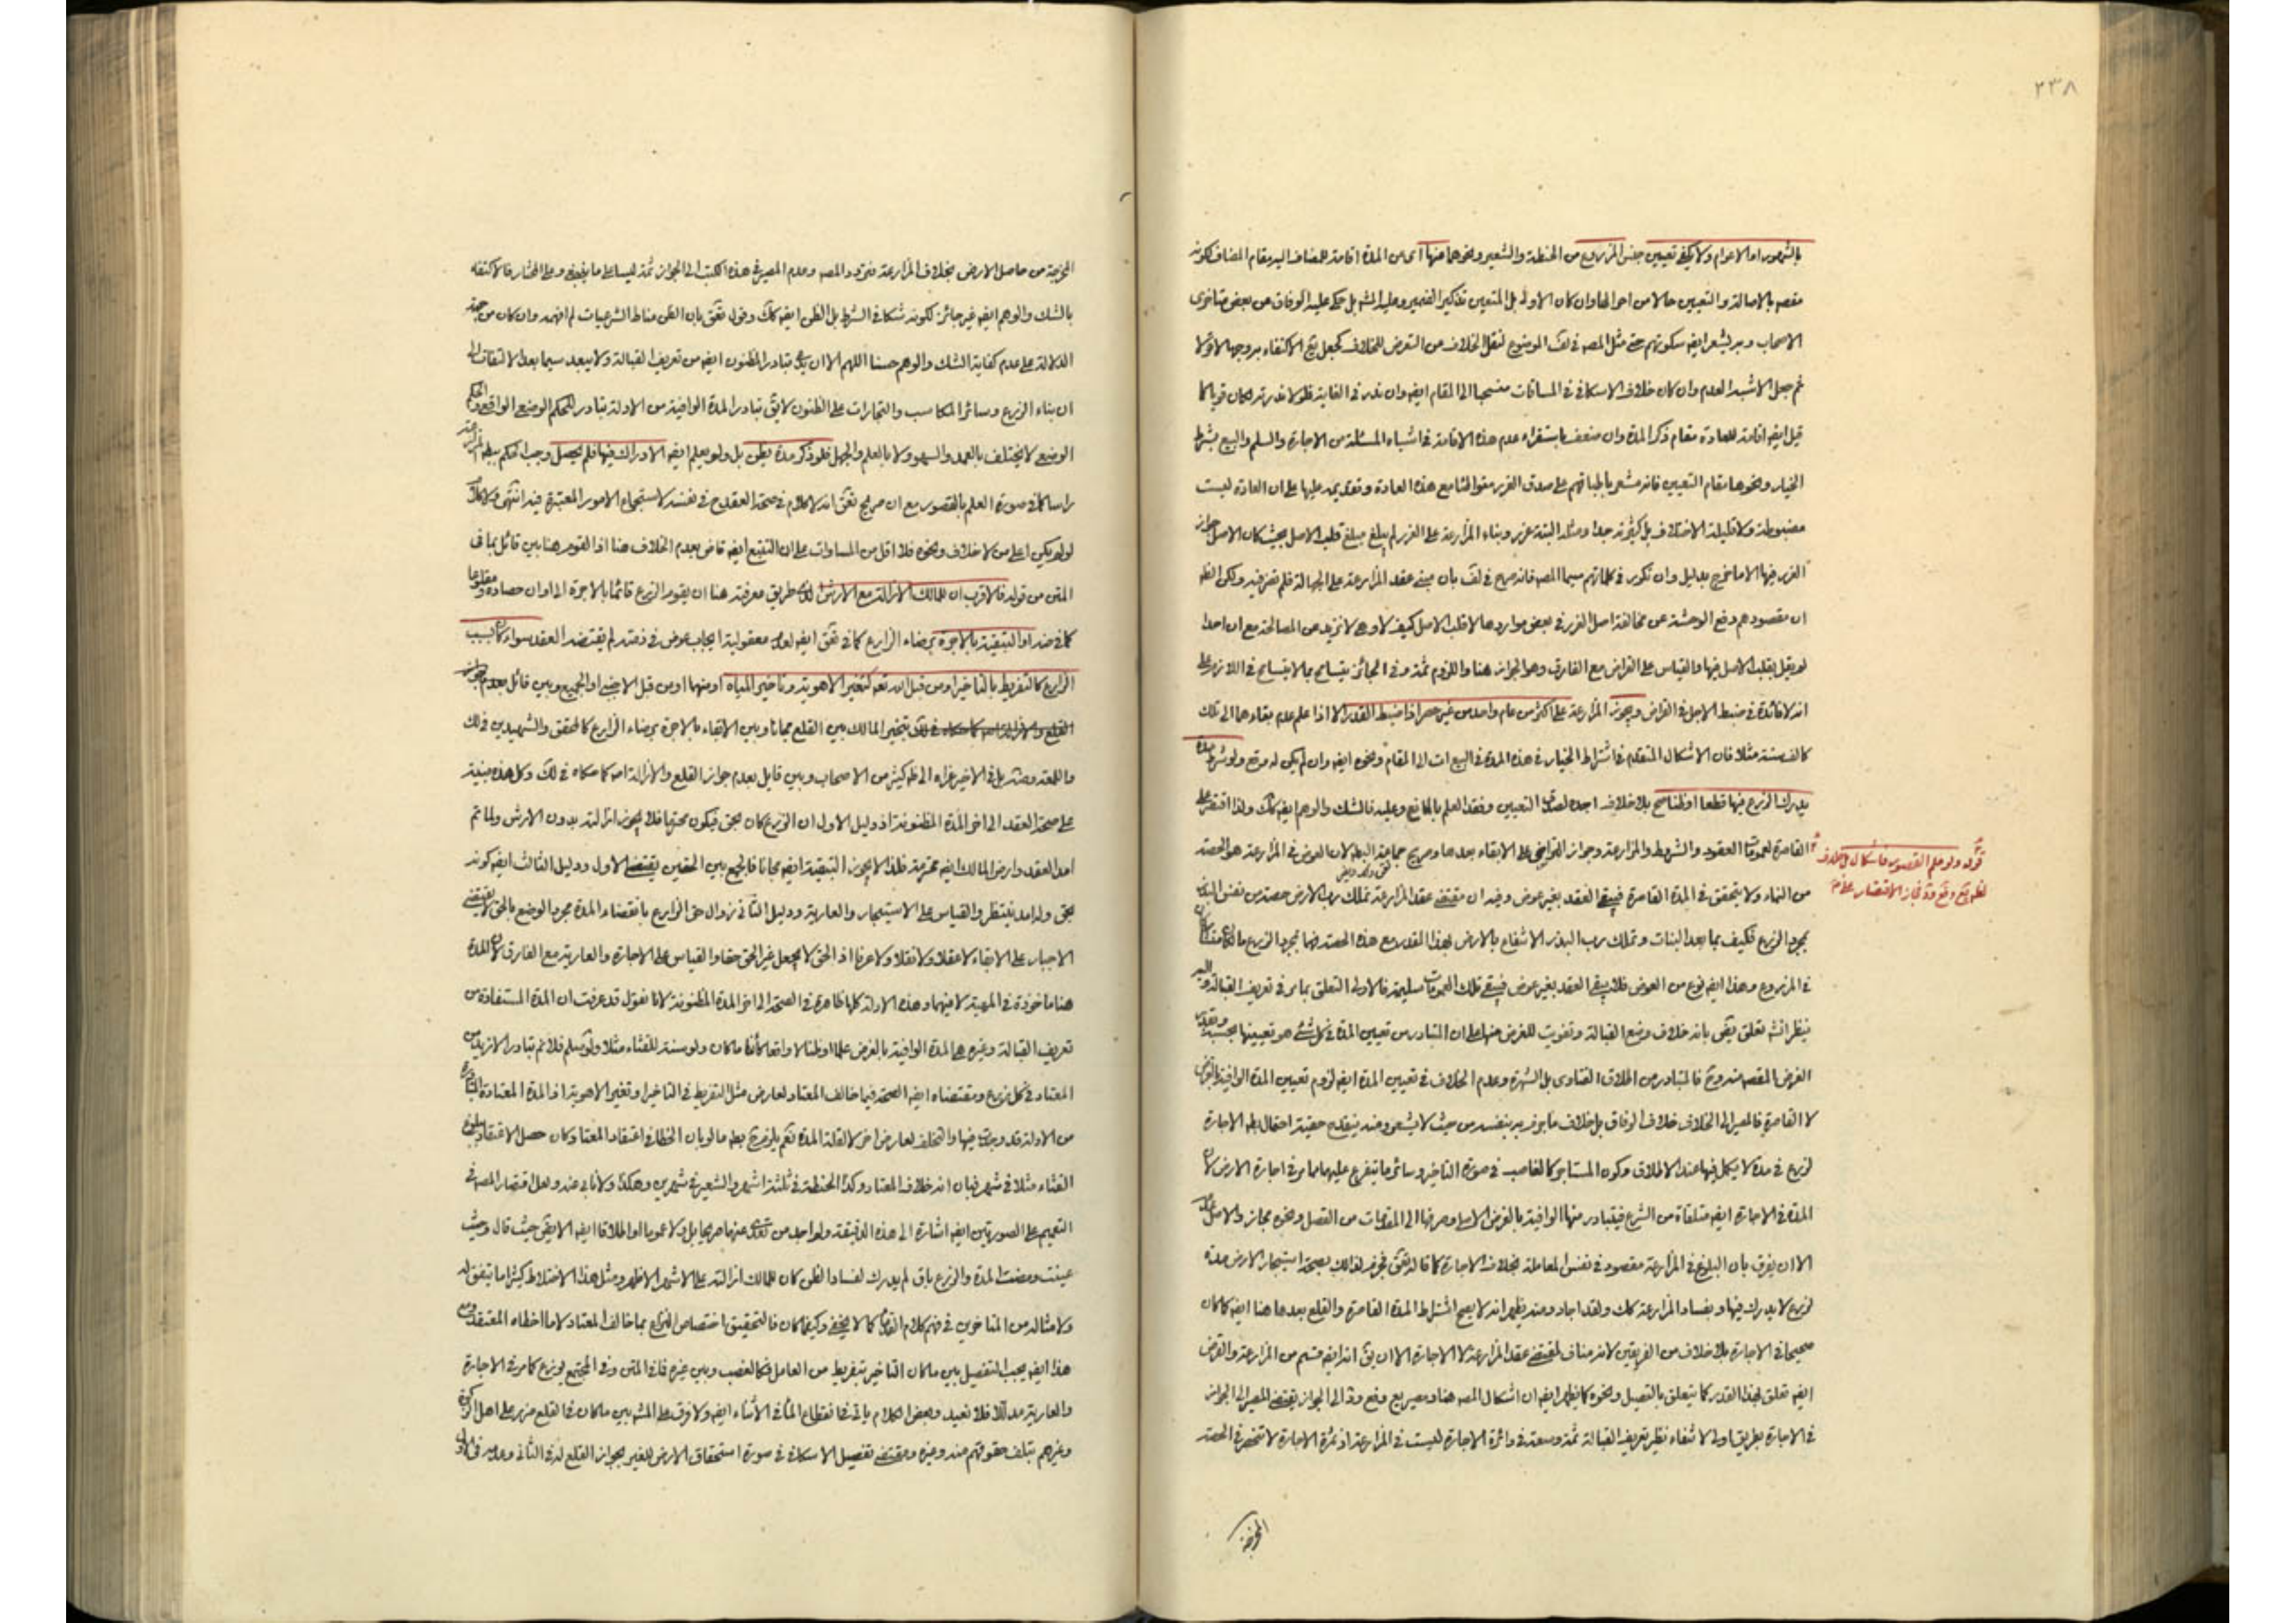 ٢٣٨
بالشهور او الاعوام ولا يكفي تعيين جنس المزروع من الحنطة والشعير ونحوهما منها اى من المدة اقامة للمضاف اليه مقام المضاف لكونه
مقصه بالاصالة والتعيين حالا من احوالها وان كان الاولى بل المتعين تذكير الضمير وعليه الشه بل حكى عليه الوفاق عن بعض متاخرى
الاصحاب ويشعر ايضه سكوتهم حتى مثل المصه فى لف الموضوع لنقل الخلاف عن التعرض للخلاف الاكتفاء
ثم جعل الاشبه العدم وان كان خلاف الاسكافى فى المساقات منسحبا الى المقام ايضه وان ندر فى الغاية فلولا ندرته لكان قويا كما
قيل ايضه اقامة للعادة مقام ذكر المدة وان ضعف باستقراء عدم هذه الاقامة فى اشباه المسئلة من الاجارة والسلم والبيع بشرط
الخيار ونحوها مقام التعيين فانه مشعر باطباقهم على صدق الغرر مع هذه العادة على ان العادة ليست
مضبوطة ولا قليلة الاختلاف بل كثيرته جدا ومثله البتة غرر وبناء المزارعة على الغرر لم يبلغ مبلغ قلب الاصل بحيث كان الاصل جواز
الغرر فيها الا ما خرج بدليل وان تكرر فى كلماتهم سيما المصه فانه صرح فى لف بان مبنى عقد المزارعة على الجهالة فلم تضر فيه ولكن الظه
ان مقصودهم دفع الوحشة عن مخالفة اصل الغرر فى بعض مواردها لا قلب الاصل كيف لا وهى لا تزيد عن المصالحة مع ان احدا
لم يقل بقلب الاصل فيها والقياس على القراض مع الفارق وهو الجواز هنا واللزوم ثمة وفى الجائز يتسامح بما لا يتسامح فى اللازم على
انه لا فائدة فى ضبط الاجل فى القراض ويجوز المزارعة على اكثر من عام واحد من غير حصر اذا ضبط القدر الا اذا علم عدم بقاءهما الى تلك
كالف سنة مثلا فان الاشكال المتقدم فى اشتراط الخيار فى هذه المدة فى البيع ات الى المقام ونحوه ايضه وان لم يكن له موقع ولو شرط مدة
يدرك الزرع فيها قطعا او ظنا صح بلا خلاف اجده لصدق التعيين وفقد العلم بالمانع وعليه فالشك والوهم ايضه كك ولذا اقتصر على
القاصرة لعمومات العقود والشروط والمزارعة وجواز التراضى على الابقاء بعدها وصريح جماعة البطلان لان العوض فى المزارعة هو الحصة
قوله ولو علم القصور فاشكال
من النماء ولا يتحقق فى المدة القاصرة فيبقى العقد بغير عوض وفيه ان مقتضى عقد المزارعة تملك رب الارض حصة من نفس البذر
بمجرد الزرع فكيف بما بعد النبات وتملك رب البذر الانتفاع بالارض بهذا المقدر مع هذه الحصة فيها بمجرد الزرع
فى المزروع وهذا ايضه نوع من العوض فلا يبقى العقد بغير عوض فيبقى تلك العمومات سليمة فالاولى التعلق بما مر فى تعريف القبالة
بان خلاف وضع القبالة وتفويت للغرض منها على ان المتبادر من تعيين المدة فى كل شئ هو تعيينها بحسب
الغرض المقصه منه وح فالمتبادر من اطلاق الفتاوى بل الشهرة وعدم الخلاف فى تعيين المدة ايضه لزوم تعيين المدة الوافية بالغرض
لا القاصرة فالمصير الى الخلاف خلاف الوفاق بل خلاف ما يعرف به بنفسه من حيث لا يشعر ومنه ينقدح حقية احتمال بطه الاجارة
لزرع فى مدة لا يكمل فيها عند الاطلاق وكون المستاجر كالغاصب فى صورة التاخير وسائر ما يتفرع عليهما مما مر فى اجارة الارض لان
المدة فى الاجارة ايضه متلقاة من الشرع فيتبادر منها الوافية بالغرض الاصلى وصرفها الى المقدمات من القصل ونحوه مجاز والاصل عدمه
الا ان يفرق بان البلوغ فى المزارعة مقصود فى نفس المعاملة بخلاف الاجارة كما قاله فى لذلك بصحة استيجار الارض مدة
لزرع لا يدرك فيها وبفساد المزارعة كك ولقد اجاد ومنه يظهر انه لا يصح اشتراط المدة القاصرة والقلع بعدها هنا ايضه كما كان
صحيحا فى الاجارة بلا خلاف من الفريقين لانه مناف لمقتضى عقد المزارعة لا الاجارة الا ان يق انه ايضه قسم من المزارعة والغرض
ايضه تعلق بهذا القدر كما يتعلق بالقصيل ونحوه كما يظهر ايضه ان اشكال المصه هنا ومصير الى الجواز يقتضى المصير الى الجواز
فى الاجارة بطريق اولى لانتفاء نظير تعريف القبالة ثمة وسعة فى دائرة الاجارة ليست فى المزارعة اذ ثمرة الاجارة لا تنحصر فى الحصة
المخرجة
المخرجة من حاصل الارض بخلاف المزارعة فتردد المصه وعدم المصير فى هذه الكتب الى الجواز ثمة ليسا على ما ينبغى وعلى المختار فالاكتفاء
بالشك والوهم ايضه غير جائز لكونه شكا فى الشرط بل الظن ايضه كك وقوله بان الظن مناط الشرعيات لم افهمه وان كان من جهة
الدلالة على عدم كفاية الشك والوهم حسنا اللهم الا ان يدعى تبادر المظنون ايضه من تعريف القبالة ولا يبعد سيما بعد الالتفات الى
ان بناء الزرع وسائر المكاسب والتجارات على الظنون لا يق تبادر المدة الوافية من الادلة تبادر للحكم الوضعى الواقعى والحكم
الوضعى لا يختلف بالعمد والسهو ولا بالعلم والجهل فلو ذكر مدة يظن بل ولو يعلم ايضه الادراك فيها فلم يحصل وجب الحكم ببطه المزارعة
راسا كما فى صورة العلم بالقصور مع ان صريح انه لا كلام فى صحة العقد ح فى نفسه لاستجماع الامور المعتبرة فيه انتهى
لو لم يكن اعلى من لا خلاف ونحوه فلا اقل من المساوات على ان التتبع ايضه قاض بعدم الخلاف هنا اذ القوم هنا بين قائل بما فى
المتن من قوله فالاقرب ان للمالك الازالة مع الارش طريق معرفته هنا ان يقوم الزرع قائما بالاجرة الى اوان حصاده ومقلوعا
او التبقية بالاجرة برضاء الزارع كما فى ايضه لعدم معقولية ايجاب عوض فى ذمته لم يقتضه العقد سواء كان بسبب
الزارع كالتفريط بالتاخير او من قبل الله تعه كتغير الاهوية وتاخير المياه او منهما او من قبل الاجنبى او الجميع وبين قائل بعدم جواز
بتخيير المالك بين القلع مجانا وبين الابقاء بالاجرة برضاء الزارع كالمحقق والشهيدين فى لك
واللمعة بل فى الاخير عزاه الى ظه كثير من الاصحاب وبين قايل بعدم جواز القلع والازالة اصه كما حكاه فى لك وكل هذه مبنية
على صحة العقد الى اخر المدة المظنونة اذ دليل الاول ان الزرع كان بحق فيكون محترما فلا يجوز ازالته بدون الارش ولما تم
امد العقد وارض المالك ايضه محترمة فلذا لا يجوز التبقية ايضه مجانا فالجمع بين الحقين يقتضى الاول ودليل الثالث ايضه كونه
بحق وله امد ينتظر والقياس على الاستيجار والعارية ودليل الثانى زوال حق الزارع بانقضاء المدة مجرد الوضع بالحق لا يقتضى
الاجبار على الابقاء لا عقلا ولا نقلا ولا عرفا اذ الحق لا يجعل غير الحق حقا والقياس على الاجارة والعارية مع الفارق لان المدة
هنا ماخوذة فى المهية لا فيهما وهذه الادلة كلها ظاهرة فى الصحة الى اخر المدة المظنونة لانا نقول قد عرفت ان المدة المستفادة من
تعريف القبالة وغيره هى المدة الوافية بالغرض علما او ظنا لا واقعا كائنا ما كان ولو سنة للقثاء مثلا ولو سلم فلا ثم تبادر الازيد من
المعتاد فى كل زرع ومقتضاه ايضه الصحة فيما خالف المعتاد لعارض مثل التفريط فى التاخير او تغير الاهوية اذ المدة المعتادة
من الادلة قد وجدت فيها والتخلف لعارض اخر لا لقلة المدة نعم يلزم ح بطه ما لو بان الخطاء فى اعتقاد المعتاد كان حصل الاعتقاد ببلوغ
القثاء مثلا فى شهر فبان انه خلاف المعتاد وكذا الحنطة فى ثلثة اشهر والشعير فى شهرين وهكذا ولا نابى عنه ولعل اقتصار المصه فى
التعميم على الصورتين ايضه اشارة الى هذه الدقيقة ولم اجد من تعدى عنهما صريحا بل ولا عموما او اطلاقا ايضه الا حيث قال وحيث
عينت ومضت المدة والزرع باق لم يدرك لفساد الظن كان للمالك ازالته على الاشهر الاظهر ومثل هذا الاختلاط كثيرا ما يتفق له
ولامثاله من المتاخرين فى فهم كلام القدماء كما لا يخفى وكيفما كان فالتحقيق اختصاص النزاع بما خالف المعتاد لا ما اخطاه المعتقد ومع
هذا ايضه يجب التفصيل بين ما كان التاخير بتفريط من العامل فكالغصب وبين غيره فما فى المتن وفى المجتمع يوزع كما مر فى الاجارة
والعارية مدللا فلا نعيد وبعض الكلام ياتى فى انقطاع الماء فى الاثناء ايضه ولا فرق على المشه بين ما كان فى القلع ضرر على اهل الزكوة
وغيرهم بتلف حقوقهم منه وغيره ومقتضى تفصيل الاسكافى فى صورة استحقاق الارض للغير بجواز القلع له فى الثانى وعدمه فى الاول